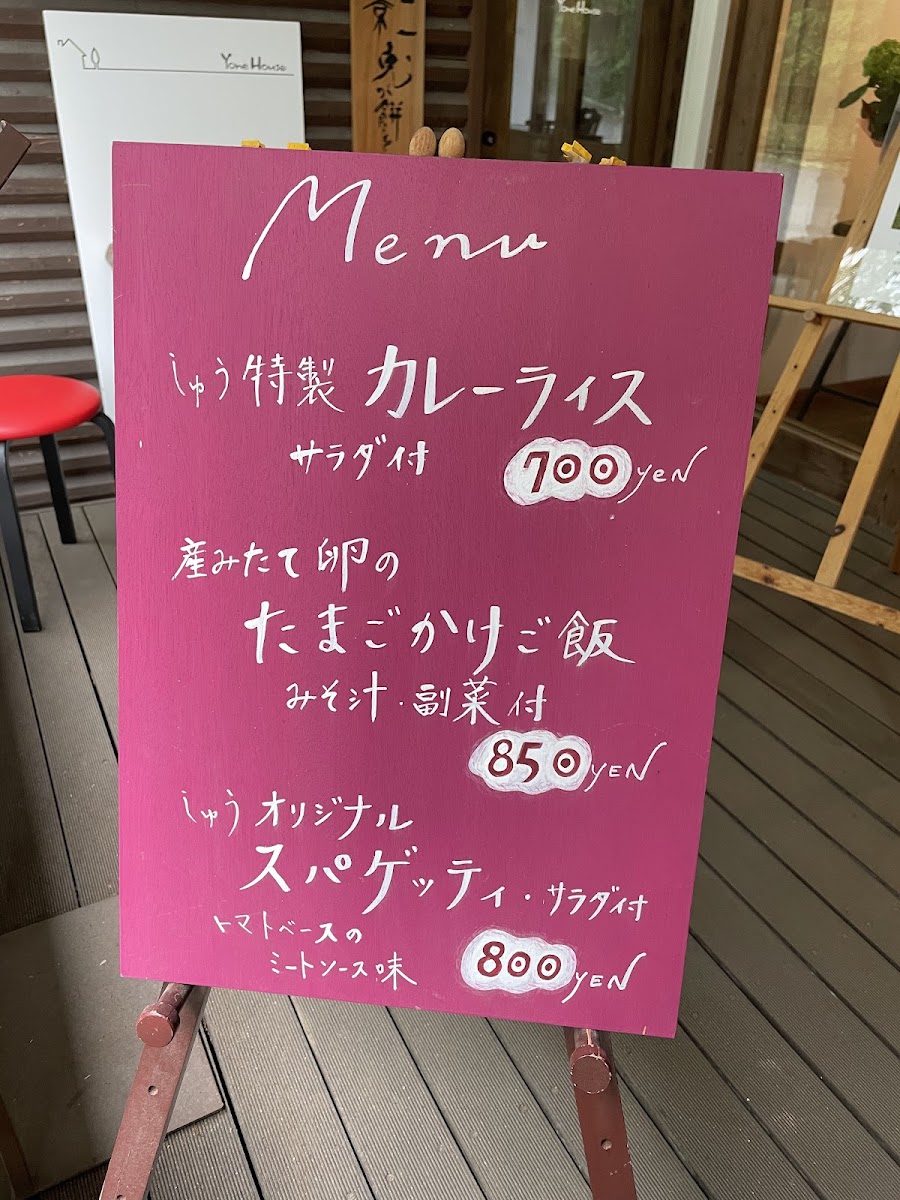 Yone House
Yone House
Menu
しゅう特製 カレーライス
サラダ付
700 yeN
産みたて卵の
たまごかけご飯
みそ汁・副菜付
850 YEN
しゅうオリジナル
スパゲッティ・サラダ付
トマトベースの
ミートソース味
800 YEN